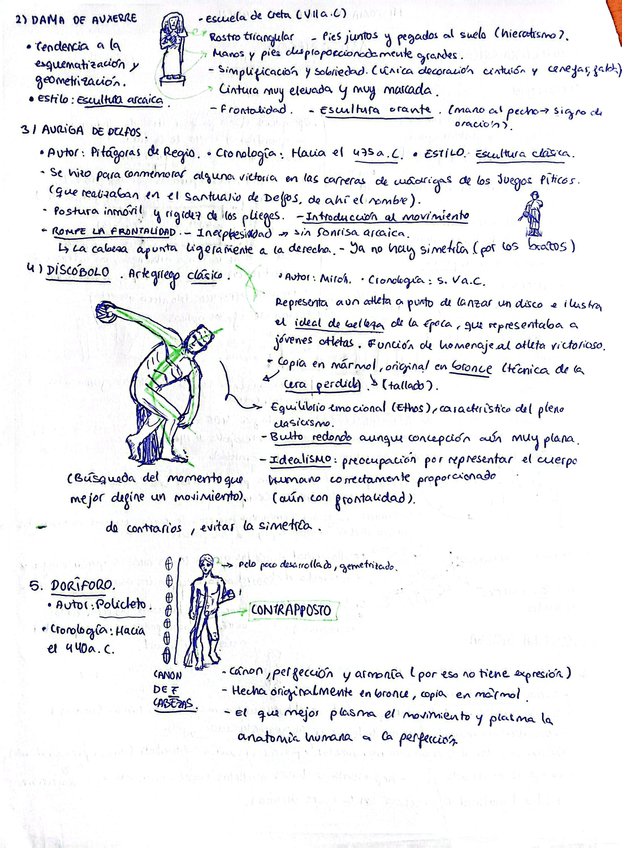 2) DAMA DE AUXERRE
- escuela de Creta (VII a.C)
Rostro triangular - Pies juntos y pegados al suelo (hieratismo).
• Tendencia a la esquematización y geometrización.
Manos y pies desproporcionadamente grandes.
- Simplificación y sobriedad. (única decoración cinturón y cenefas, falda)
• Estilo: Escultura arcaica.
Cintura muy elevada y muy marcada.
- Frontalidad. - Escultura orante. (mano al pecho → signo de oración).
3) AURIGA DE DELFOS.
• Autor: Pitágoras de Regio. • Cronología: Hacia el 475 a.C. • ESTILO: Escultura clásica.
- Se hizo para conmemorar alguna victoria en las carreras de cuádrigas de los Juegos Píticos.
(que realizaban en el Santuario de Delfos, de ahí el nombre).
- Postura inmóvil y rigidez de los pliegues. - Introducción al movimiento
- ROMPE LA FRONTALIDAD. - Inexpresividad → sin sonrisa arcaica.
↳ La cabeza apunta ligeramente a la derecha. - Ya no hay simetría (por los brazos)
4) DISCÓBOLO. Arte griego clásico.
• Autor: Mirón. • Cronología: S. V a.C.
Representa a un atleta a punto de lanzar un disco e ilustra
el ideal de belleza de la época, que representaba a
jóvenes atletas. Función de homenaje al atleta victorioso.
- Copia en mármol, original en bronce (técnica de la
cera perdida). (tallado).
- Equilibrio emocional (Ethos), característico del pleno
clasicismo.
- Bulto redondo aunque concepción aún muy plana.
- Idealismo: preocupación por representar el cuerpo
humano correctamente proporcionado
(aún con frontalidad).
(Búsqueda del momento que
mejor define un movimiento).
de contrarios, evitar la simetría.
5. DORÍFORO.
→ pelo poco desarrollado, geometrizado.
• Autor: Policleto.
→ CONTRAPPOSTO
• Cronología: Hacia
el 440 a.C.
CANON
DE 7
CABEZAS.
- Cánon, perfección y armonía (por eso no tiene expresión)
- Hecha originalmente en bronce, copia en mármol.
- El que mejor plasma el movimiento y plasma la
anatomía humana a la perfección.